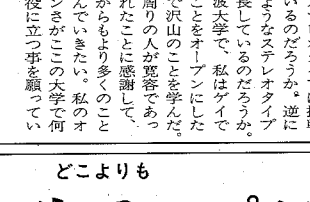 いるのだろうか。逆に
ようなステレオタイプ
長しているのだろうか。
波大学で、私はゲイで
ことをオープンにした
で沢山のことを学んだ。
周りの人が寛容であっ
れたことに感謝して、
からもより多くのこと
んでいきたい。私のオ
ンさがここの大学で何
役に立つ事を願ってい
どこよりも